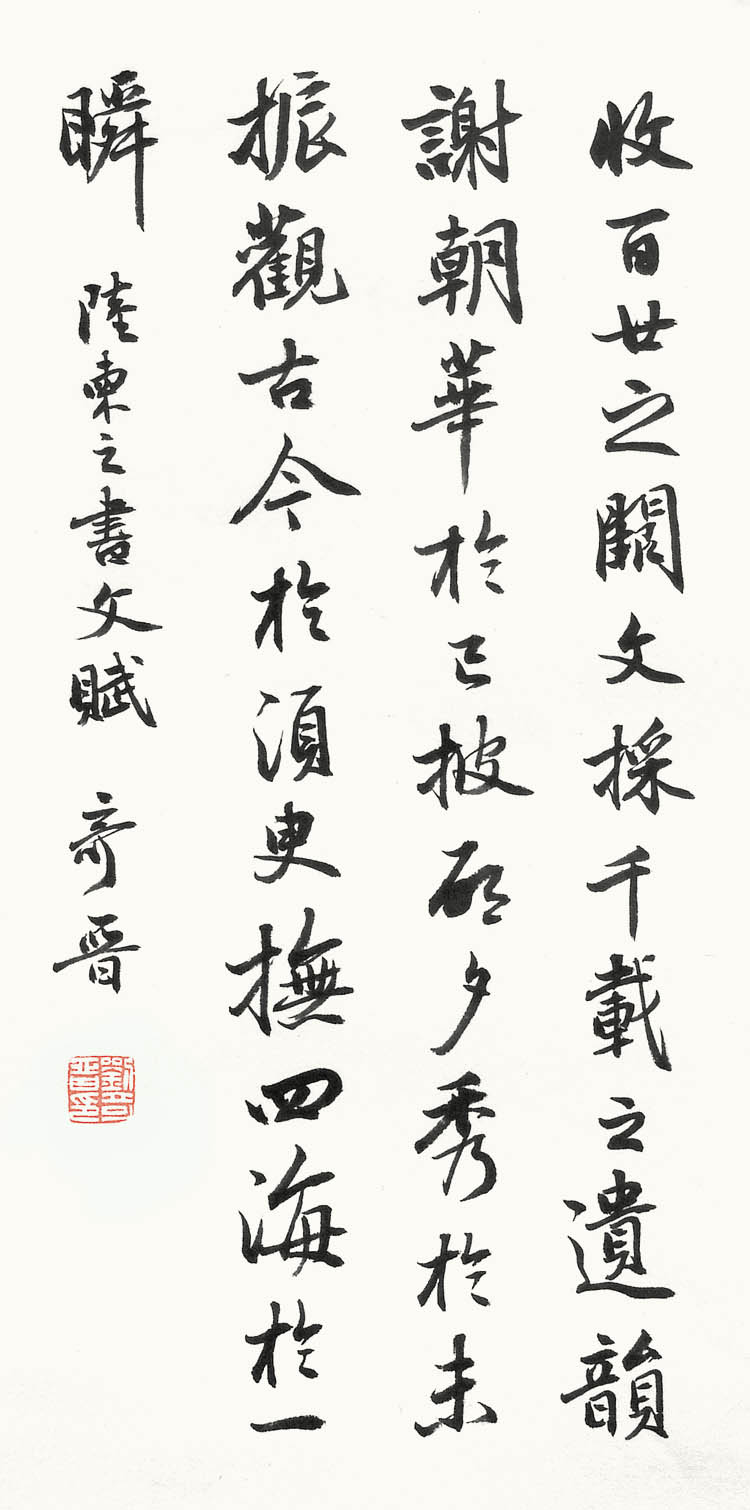 收百世之闕文採千載之遺韻
謝朝華於已披啟夕秀於未
振觀古今於須臾撫四海於一
瞬 陸柬之書文賦 奇晉
劉奇晉印